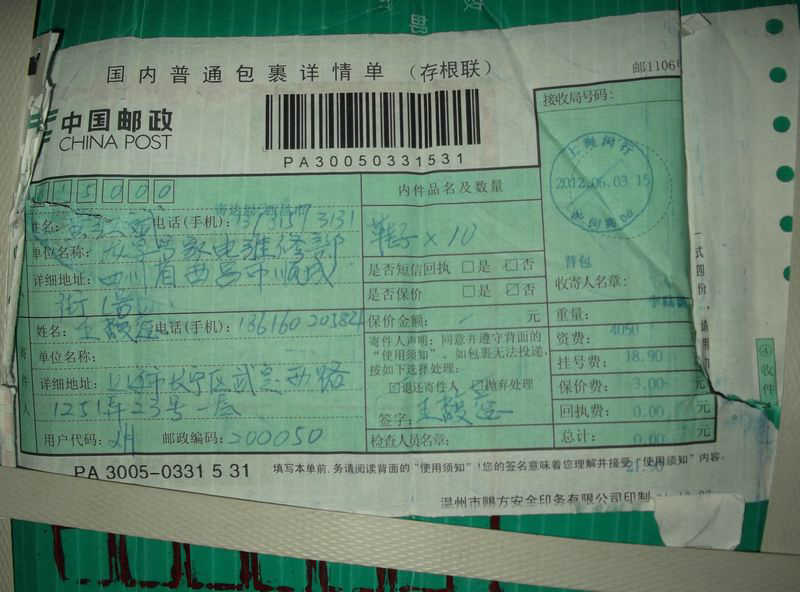 国内普通包裹详情单 (存根联)
邮1106
中国邮政
CHINA POST
PA30050331531
接收局号码:
上海闵行
2012.06.03 15
615000
内件品名及数量
姓名: 电话(手机): 3131
鞋子×10
单位名称: 家电维修部
是否短信回执 □是 ☑否
详细地址: 四川省西昌市顺城
是否保价 □是 ☑否
普包
收寄人名章:
街
重量:
姓名: 王 电话(手机):
保价金额: 元
资费: 元
单位名称:
寄件人声明: 同意并遵守背面的
“使用须知”, 如包裹无法投递,
按如下选择处理:
挂号费: 18.90
详细地址: 上海市长宁区武夷西路
☑退还寄件人 抛弃处理
保价费: 3.00 元
1251弄23号一层
签字: 王
回执费: 0.00 元
用户代码: 邮政编码: 200050
检查人员名章:
总计: 0.00 元
PA 3005-0331 5 31
填写本单前,务请阅读背面的“使用须知”!您的签名意味着您理解并接受“使用须知”内容。
温州市赐方安全印务有限公司印制
一式四份,请用
④
收件